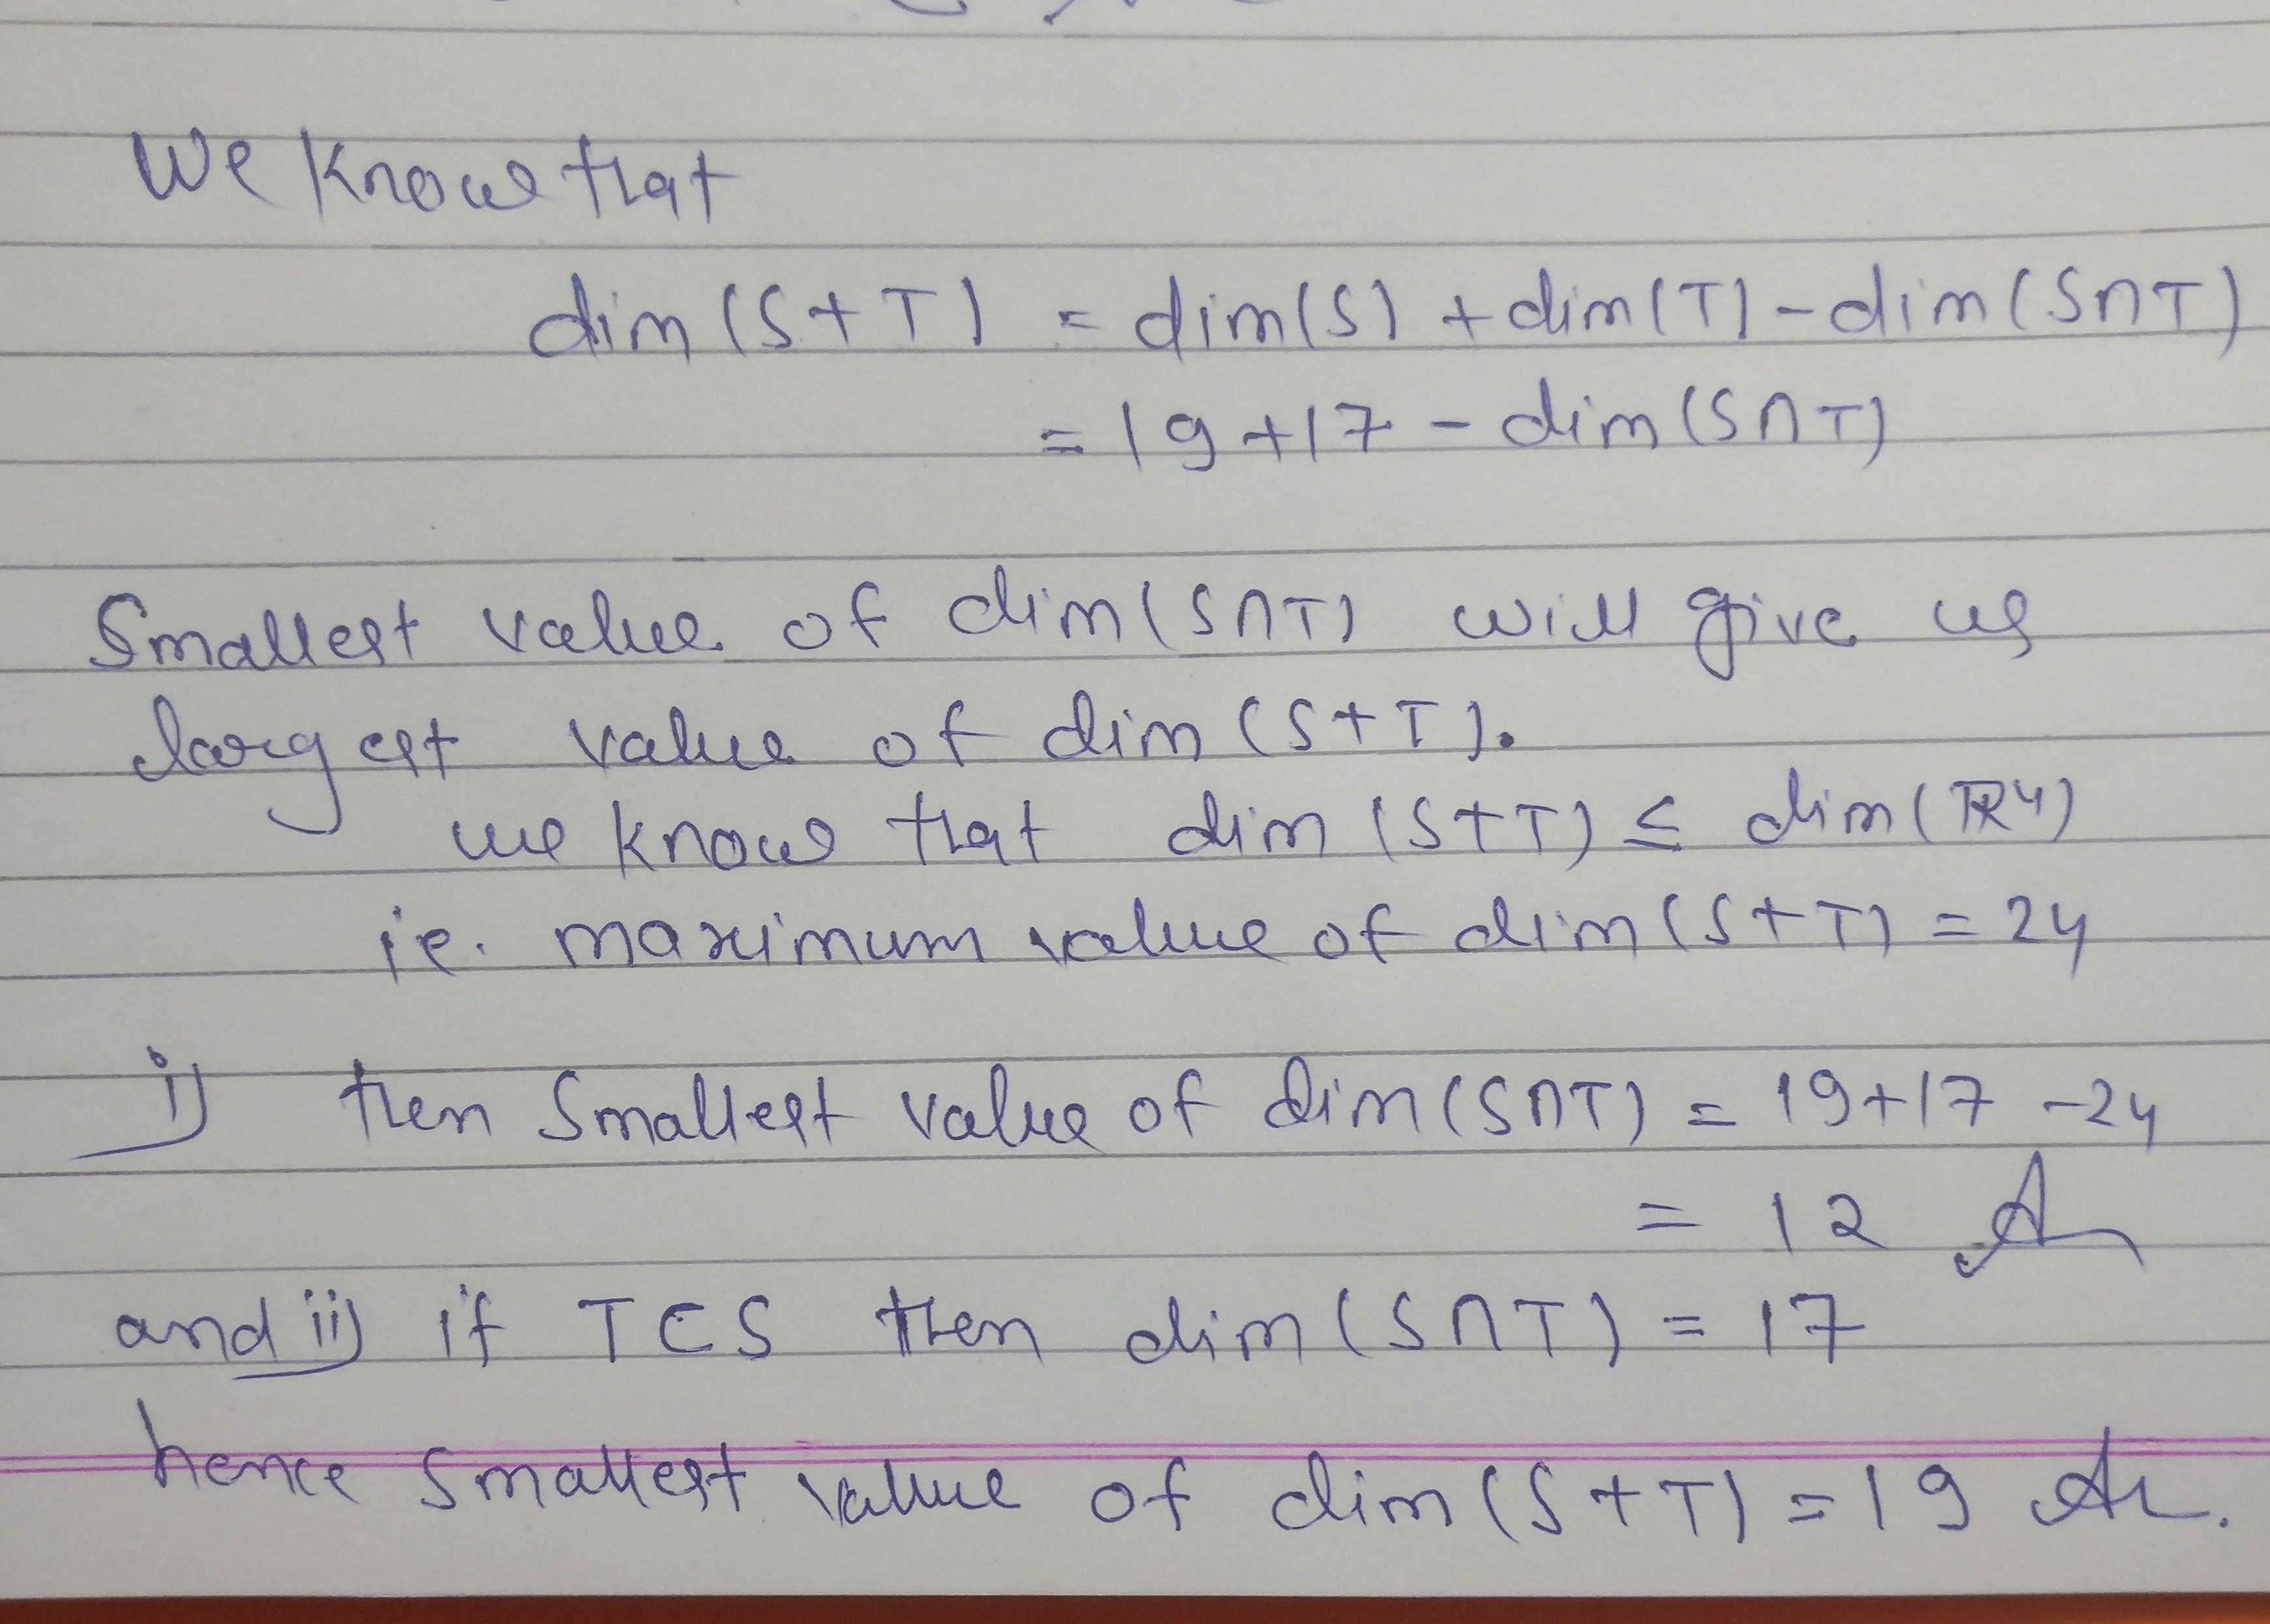 We know that
dim (S+T) = dim(S) + dim(T) - dim(S∩T)
= 19+17 - dim(S∩T)
Smallest value of dim(S∩T) will give us
largest value of dim (S+T).
we know that dim (S+T) ≤ dim(ℝ⁴)
ie. maximum value of dim(S+T) = 24
i) then smallest value of dim(S∩T) = 19+17-24
= 12 An
and ii) if T⊂S then dim(S∩T) = 17
hence smallest value of dim(S+T) = 19 An.